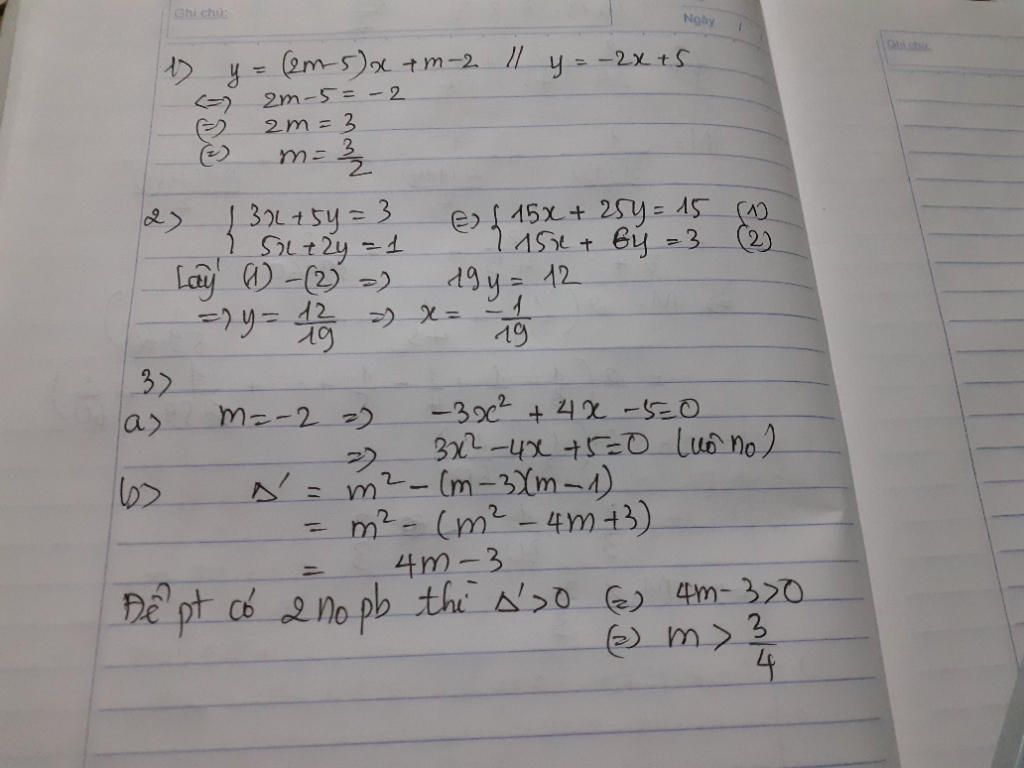 Ghi chú:
Ngày
Ghi chú:
1) y = (2m-5)x + m-2 // y = -2x+5
<=> 2m-5 = -2
(=) 2m = 3
(=) m = 3/2
2) { 3x+5y = 3 (=) { 15x + 25y = 15 (1)
5x+2y = 1 15x + 6y = 3 (2)
Lấy (1) - (2) => 19y = 12
=> y = 12/19 => x = -1/19
3)
a) m = -2 => -3x² + 4x - 5 = 0
=> 3x² - 4x + 5 = 0 (vô no)
b) Δ' = m² - (m-3)(m-1)
= m² - (m² - 4m + 3)
= 4m - 3
Để pt có 2 no pb thì Δ' > 0 (=) 4m - 3 > 0
(=) m > 3/4